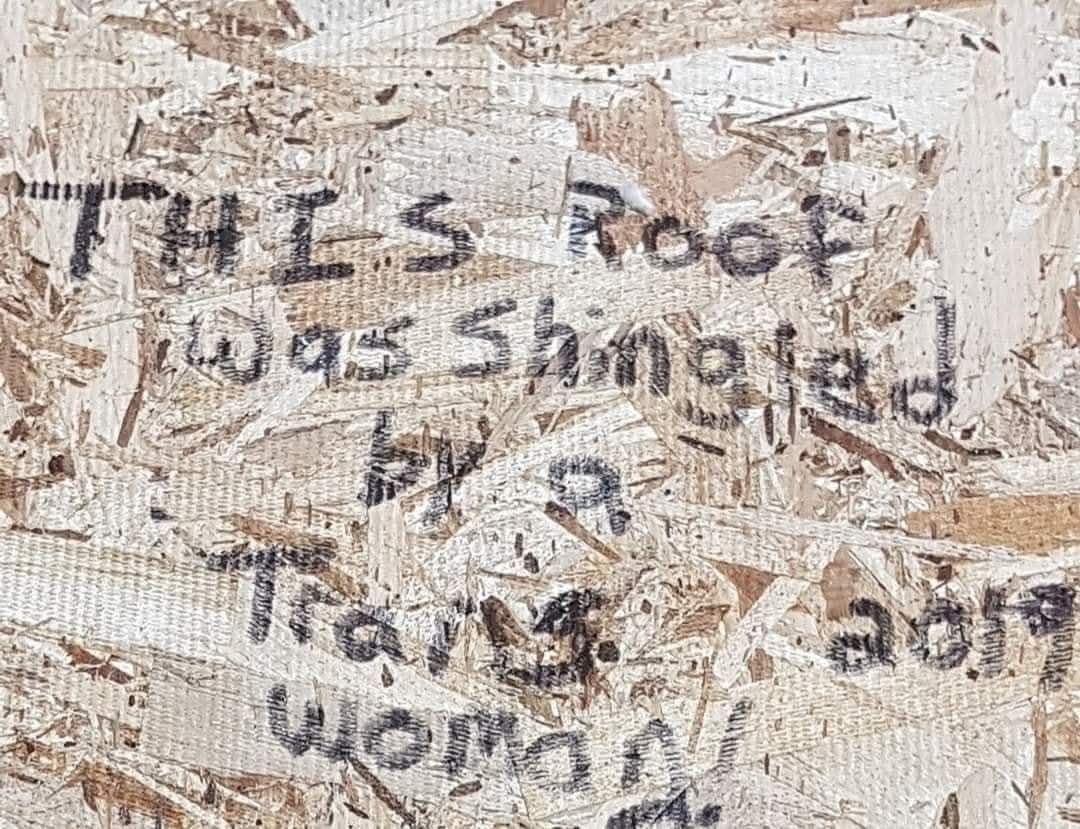 THIS Roof
was Shingled
by a
2019
woman!